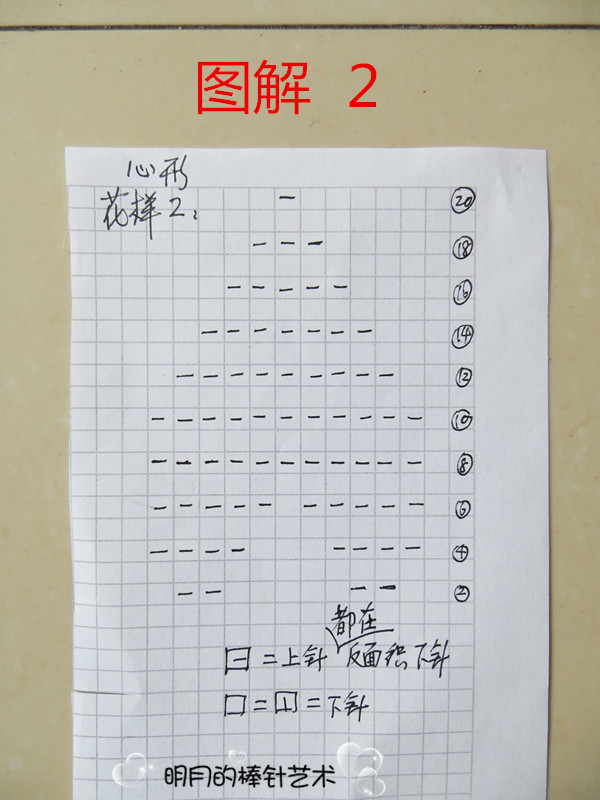 图解 2
心形
花样2:
⑳
⑱
⑯
⑭
⑫
⑩
⑧
⑥
④
②
都在
⊟=上针 反面织下针
□=⊥=下针
明月的棒针艺术